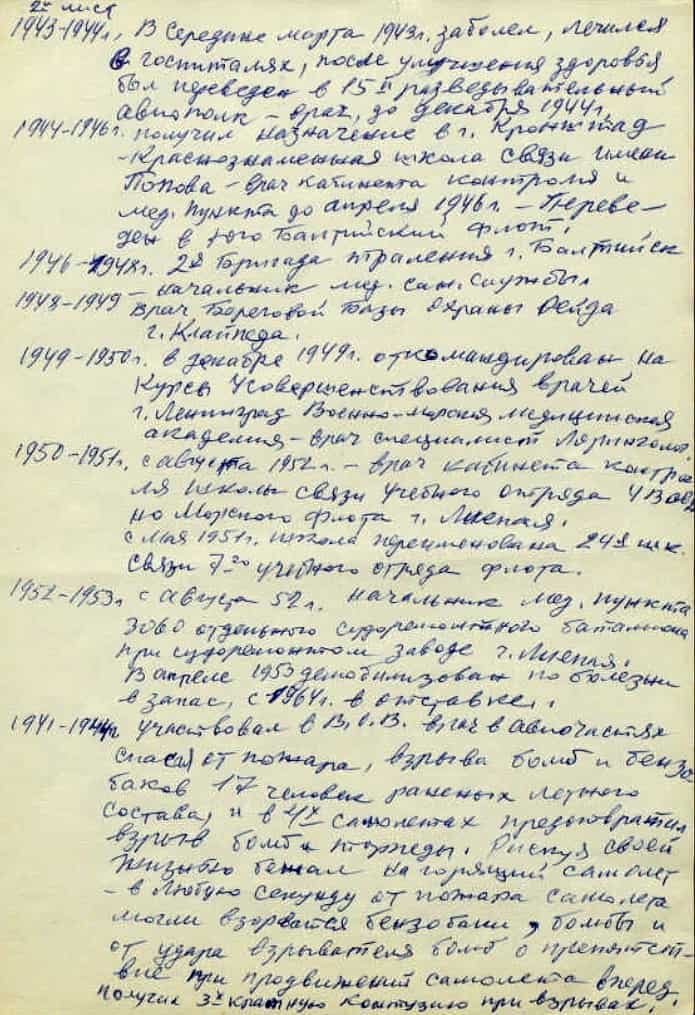 2й лист
1943-1944г, В середине марта 1943г. заболел, лечился
в госпиталях, после улучшения здоровья
был переведен в 15й разведывательный
авиополк - врач, до декабря 1944г.
1944-1946г. получил назначение в г. Кронштад
- Краснознаменная школа связи имени
Попова - врач кабинета контроля и
мед. пункта до апреля 1946г. - Переве-
ден в Юго Балтийский флот.
1946-1948г. 2я Бригада траления г. Балтийск
- начальник мед. сан. службы.
1948-1949 врач Береговой Базы Охраны Рейда
г. Клайпеда.
1949-1950г. в декабре 1949г. откомандирован на
Курсы Усовершенствования врачей
г. Ленинград Военно-морская медицинская
академия - врач специалист
1950-1951г. с августа 1952г. - врач кабинета контро-
ля школы связи учебного отряда
но Морского флота г. Лиепая.
с мая 1951г. школа переименована 24я шк.
связи 7го учебного отряда флота.
1952-1953г с августа 52г. начальник мед. пункта
3060 отдельного судоремонтного баталиона
при судоремонтном заводе г. Лиепая.
В апреле 1953 демобилизован по болезни
в запас, с 1964г. в отставке.
1941-1944г участвовал в В.О.В. врач в авиочастях
спасал от пожара, взрыва бомб и бензо
баков 17 человек раненых летного
состава, и в 4х самолетах предотвратил
взрыв бомб и торпеды. Рискуя своей
жизнью бежал на горящий самолет
- в любую секунду от пожара самолета
могли взорватся бензобаки, бомбы и
от удара взрывателя бомб о препятст-
вие при продвижений самолета вперед
получил 3х кратную контузию при взрывах.